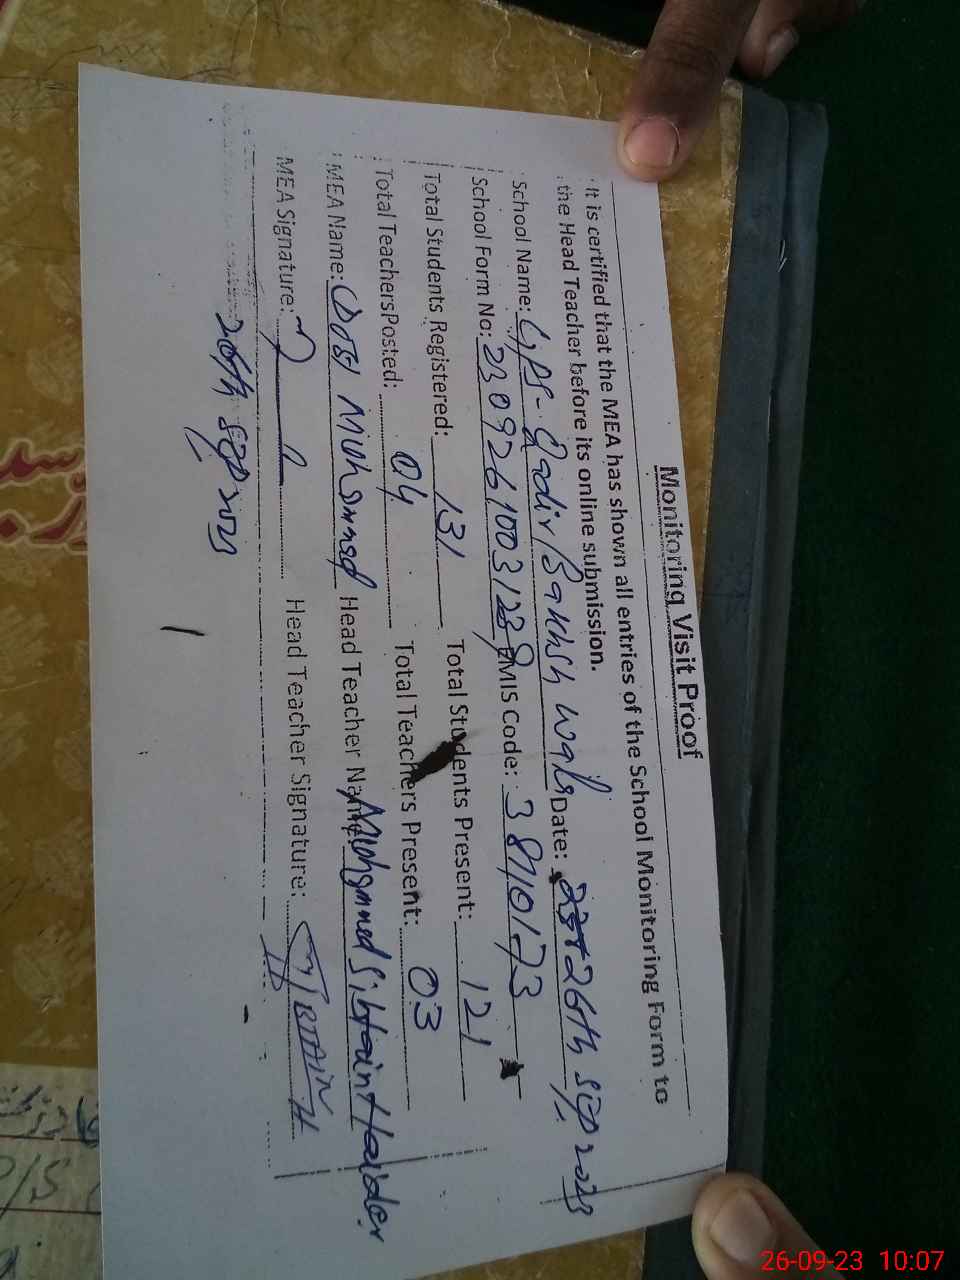 Monitoring Visit Proof
It is certified that the MEA has shown all entries of the School Monitoring Form to
the Head Teacher before its online submission.
School Name: GPS- Qadir Bakhsh Wala Date: 26th Sep 2023
School Form No: 2309261003128 EMIS Code: 38110173
Total Students Registered: 131 Total Students Present: 121
Total TeachersPosted: 04 Total Teachers Present: 03
MEA Name: Muhammad Head Teacher Name: Muhammed Sibtain Haider
MEA Signature: Head Teacher Signature: SIBTAIN H
26th Sep 2023
26-09-23 10:07